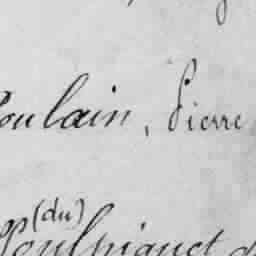 Poulain, Pierre
(du)
Poulpiquet